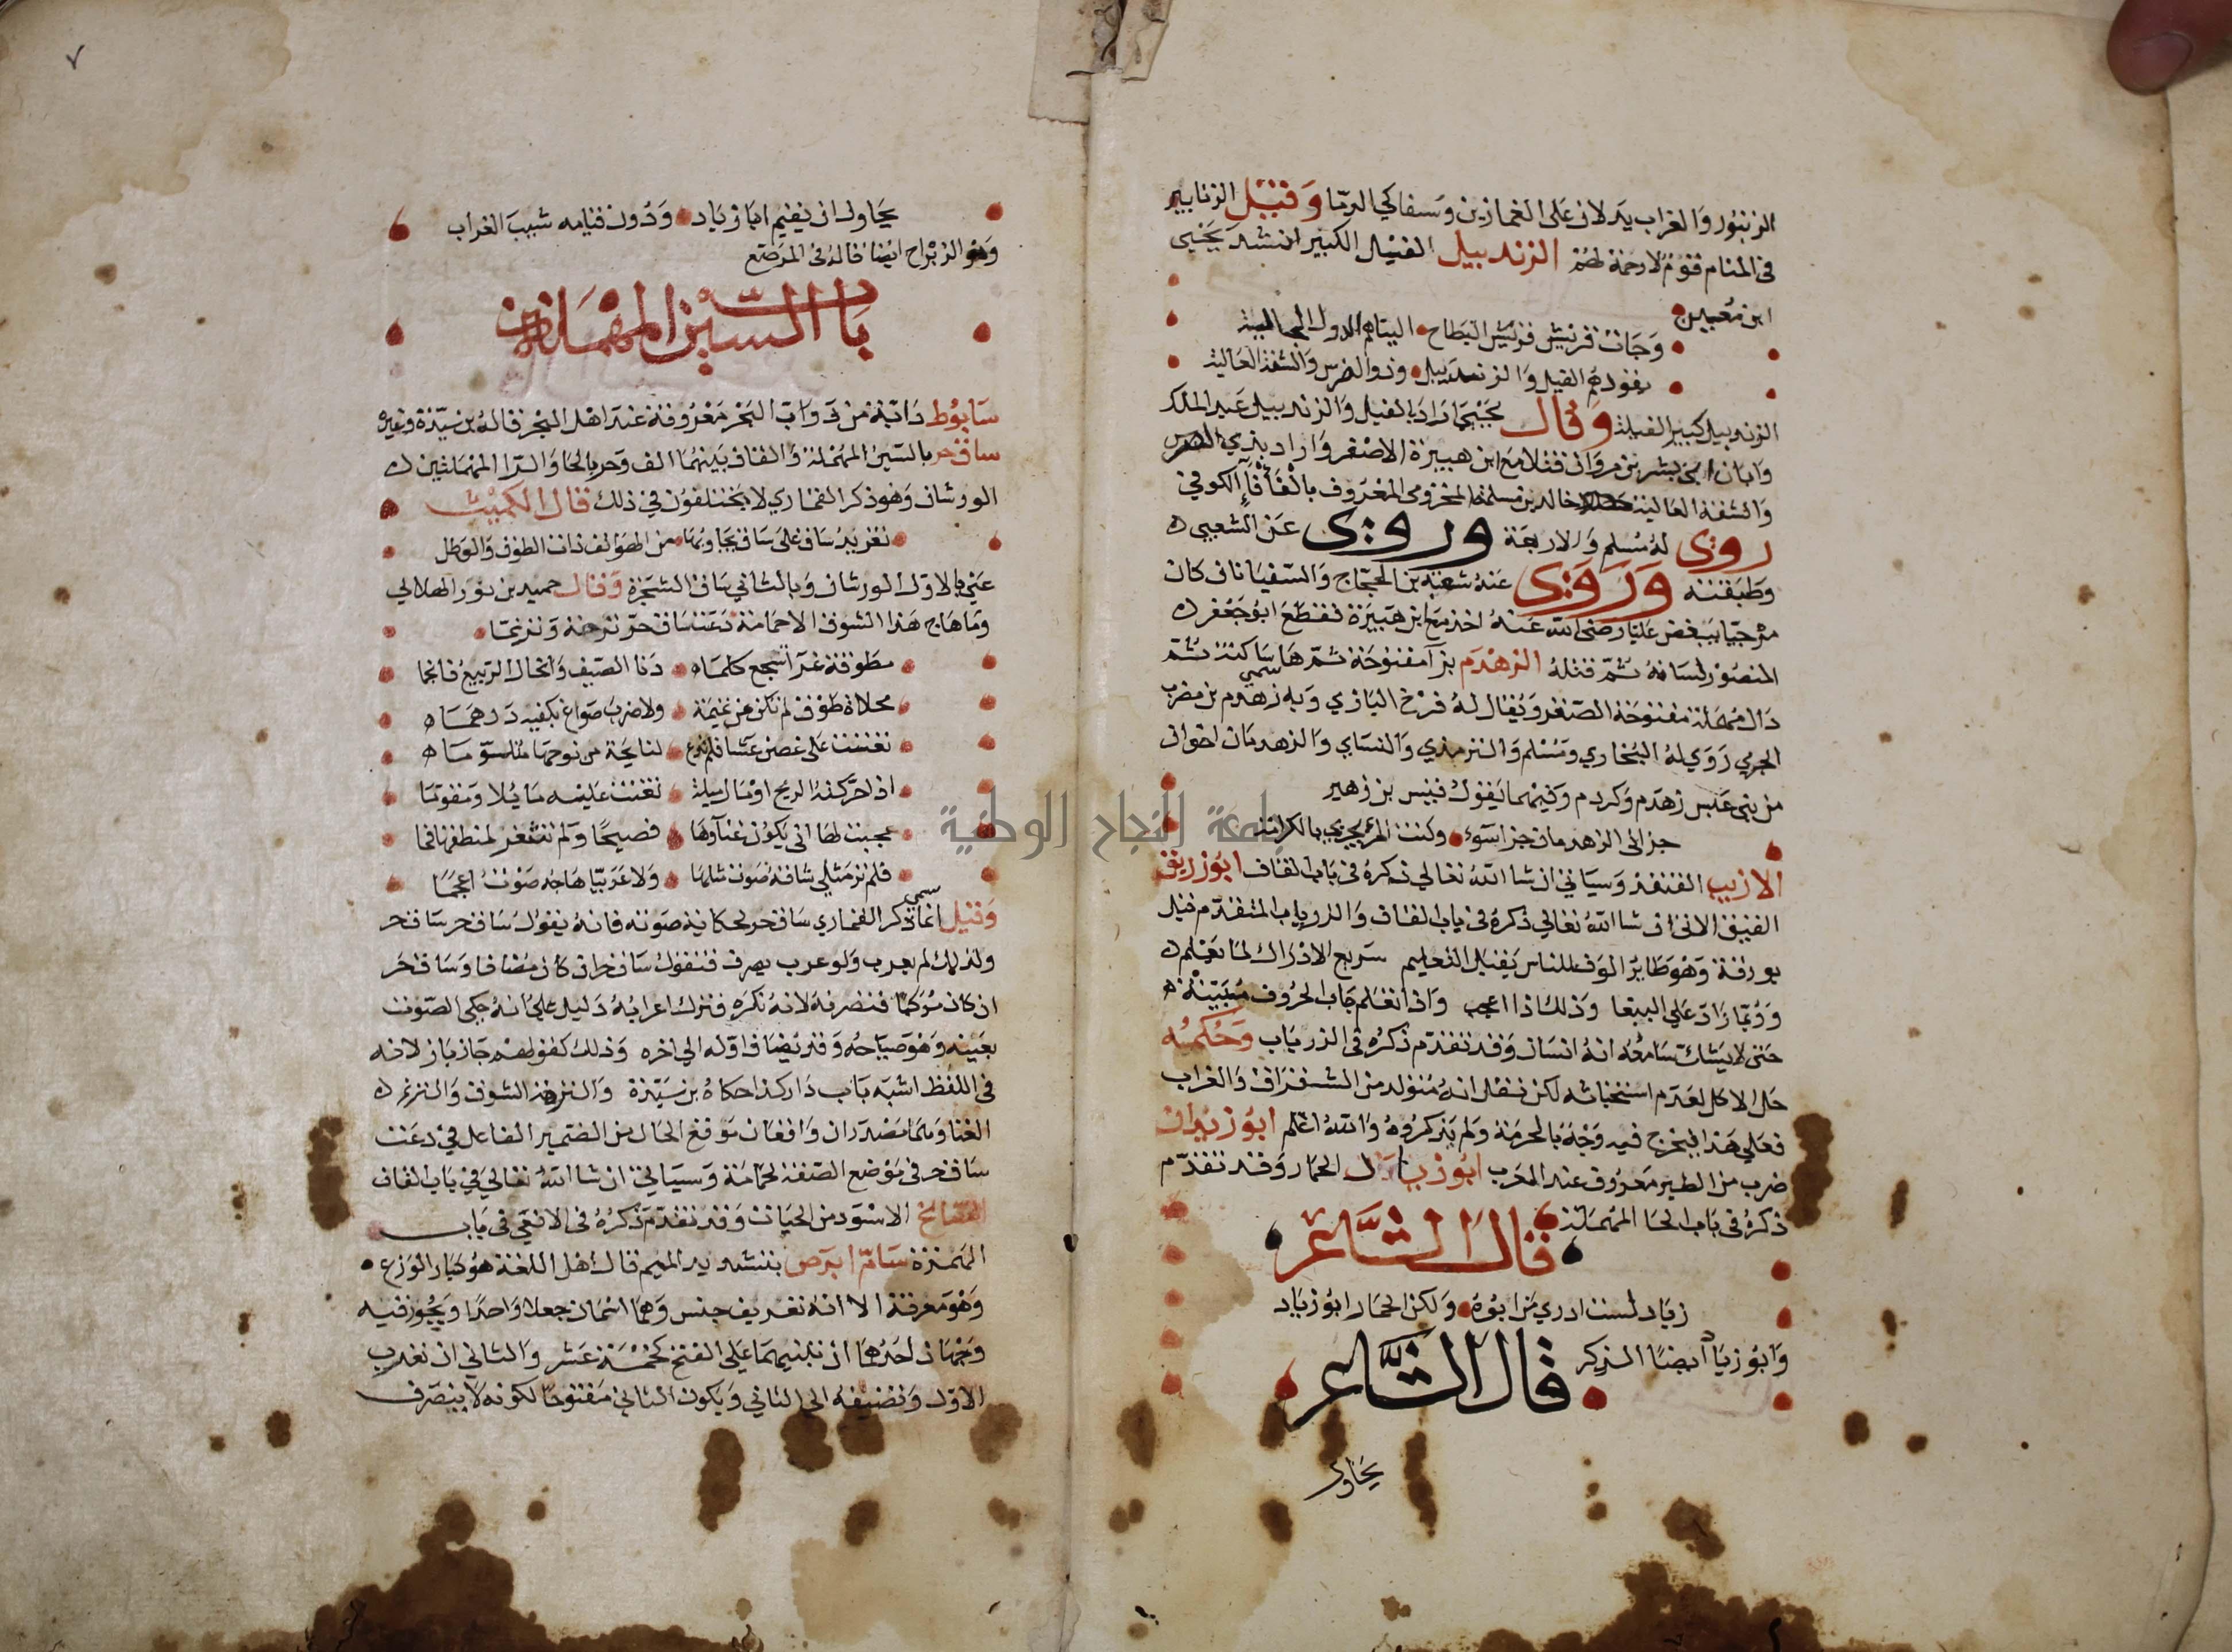 الزنبور والغراب يدلان على الغمازين وسفاكي الدما وقيل الزنابير
في المنام قوم لا رحمة لهم الزندبيل الفيل الكبير انشد يحيى
ابن معين
وجات قريش قريش البطاح اليناهم الاول الجاليه
يقودهم الفيل والزندبيل وذو الضرس والشفة العاليه
الزندبيل كبير الفيلة وقال يحيى اراد بالفيل والزندبيل عبد الملك
وابان ابنى بشر بن مروان قتلا مع ابن هبيرة الاصغر واراد بذي الضرس
والشفة العالية خالد بن مسلمة المخزومي المعروف بالفأفأ الكوفي
روى له مسلم والاربعة وروى عن الشعبي ه
وطبقته وروى عنه شعبة بن الحجاج والسفيانان كان
مرجيا يبغض عليا رضي الله عنه اخذ مع ابن هبيرة فقطع ابو جعفر ه
المنصور لسانه ثم قتله الزهدم بزآ مفتوحة ثم ها ساكنة ثم
دال مهملة مفتوحة الصقر ويقال له فرخ البازي وبه سمي زهدم بن مضرب
الجرمي روي له البخاري ومسلم والترمذي والنساي والزهدمان اخوان
من بني عبس زهدم وكردم وفيهما يقول قيس بن زهير
جزانى الزهدمان جزا سوء وكنت المرء يجزي بالكرامة
الازيب القنفذ وسياتي ان شا الله تعالى ذكره في باب القاف ابو زريق
القيق الاتى ان شا الله تعالي ذكره في باب القاف والزرياب المتقدم قيل
بو رقة وهو طاير الوف للناس يقبل التعليم سريع الادراك لما يعلم ه
وربما زاد علي الببغا وذلك اذا انجب واذا تعلم جاب الحروف مبينة ه
حتى لا يشك سامعه انه انسان وقد تقدم ذكره في الزرياب وحكمه
حل الاكل لعدم استخباثه لكن نقل انه متولد من الشقراق والغراب
فعلي هذا يتخرج فيه وجه بالحرمة ولم يذكروه والله اعلم ابو زيدان
ضرب من الطير معروف عند العرب ابو زياد الحمار وقد تقدم
ذكره في باب الحا المهملة
قال الشاعر
زياد لست ادري من ابوه ولكن الحمار ابو زياد
وابو زياد ايضا الذكر قال الشاعر
يحاول
٧
يحاول ان يقيم ابا زياد ودون قيامه شيب الغراب
وهو الزبراح ايضا قاله في المرصع
باب السين المهملة
سابوط دابة من دواب البحر معروفة عند اهل البحر قاله بن سيدة وغيره
ساق حر بالسين المهملة والقاف بينهما الف وحر بالحا والرا المهملتين ه
الورشان وهو ذكر القماري لا يختلفون في ذلك قال الكميت
تغريد ساق على ساق يجاوبها من الهواتف ذات الطوق والعطل
عني بالاول الورشان وبالثاني ساق الشجرة وقال حميد بن ثور الهلالي
وما هاج هذا الشوق الا حمامة دعت ساق حر نرحة وترنما
مطوقة غرا تسجع كلما ه دنا الصيف وانجال الربيع فانجما
محلاة طوق لم تكن من تميمة ولا ضرب صواغ بكفيه درهما ه
تغنت على غصن عشا فلم تدع لنايحة من نوحها متلوما ه
اذا حركته الريح او مال ميلة تغنت عليه مايلا ومقوما
عجبت لها انى يكون غنآوها فصيحا ولم تفغر لمنطقها فما
فلم ار مثلي شاقه صوت مثلها ولا عربيا هاجه صوت اعجما
وقيل انما سمي ذكر القماري ساق حر لحكاية صوته فانه يقول ساق حر ساق حر
ولذلك لم يعرب ولو عرب يصرف فتقول ساق حر ان كان مضافا وساق حر
ان كان مركبا فتصرفه لانه نكره فترك اعرابه دليل علي انه حكى الصوت
بعينه وهو صياحه وقد يضاف اوله الي اخره وذلك كقولهم جاز باز لانه
في اللفظ اشبه باب دار كذا حكاه بن سيدة والنزهة الشوق والترنم ه
الغنا وهما مصدران واقعان موقع الحال من الضمير الفاعل في دعت
ساق حر في موضع الصفة لحمامة وسياتي ان شا الله تعالي في باب القاف
السالخ الاسود من الحيات وقد تقدم ذكره في الافعي في باب
الهمزة سام ابرص بتشديد الميم قال اهل اللغة هو كبار الوزغ
وهو معرفة الا انه تعريف جنس وهما اسمان جعلا واحدا ويجوز فيه
وجهان احدهما ان تبنيهما علي الفتح كخمسة عشر والثاني ان تعرب
الاول وتضيفه الي الثاني ويكون الثاني مفتوحا لكونه لا ينصرف
جامعة النجاح الوطنية